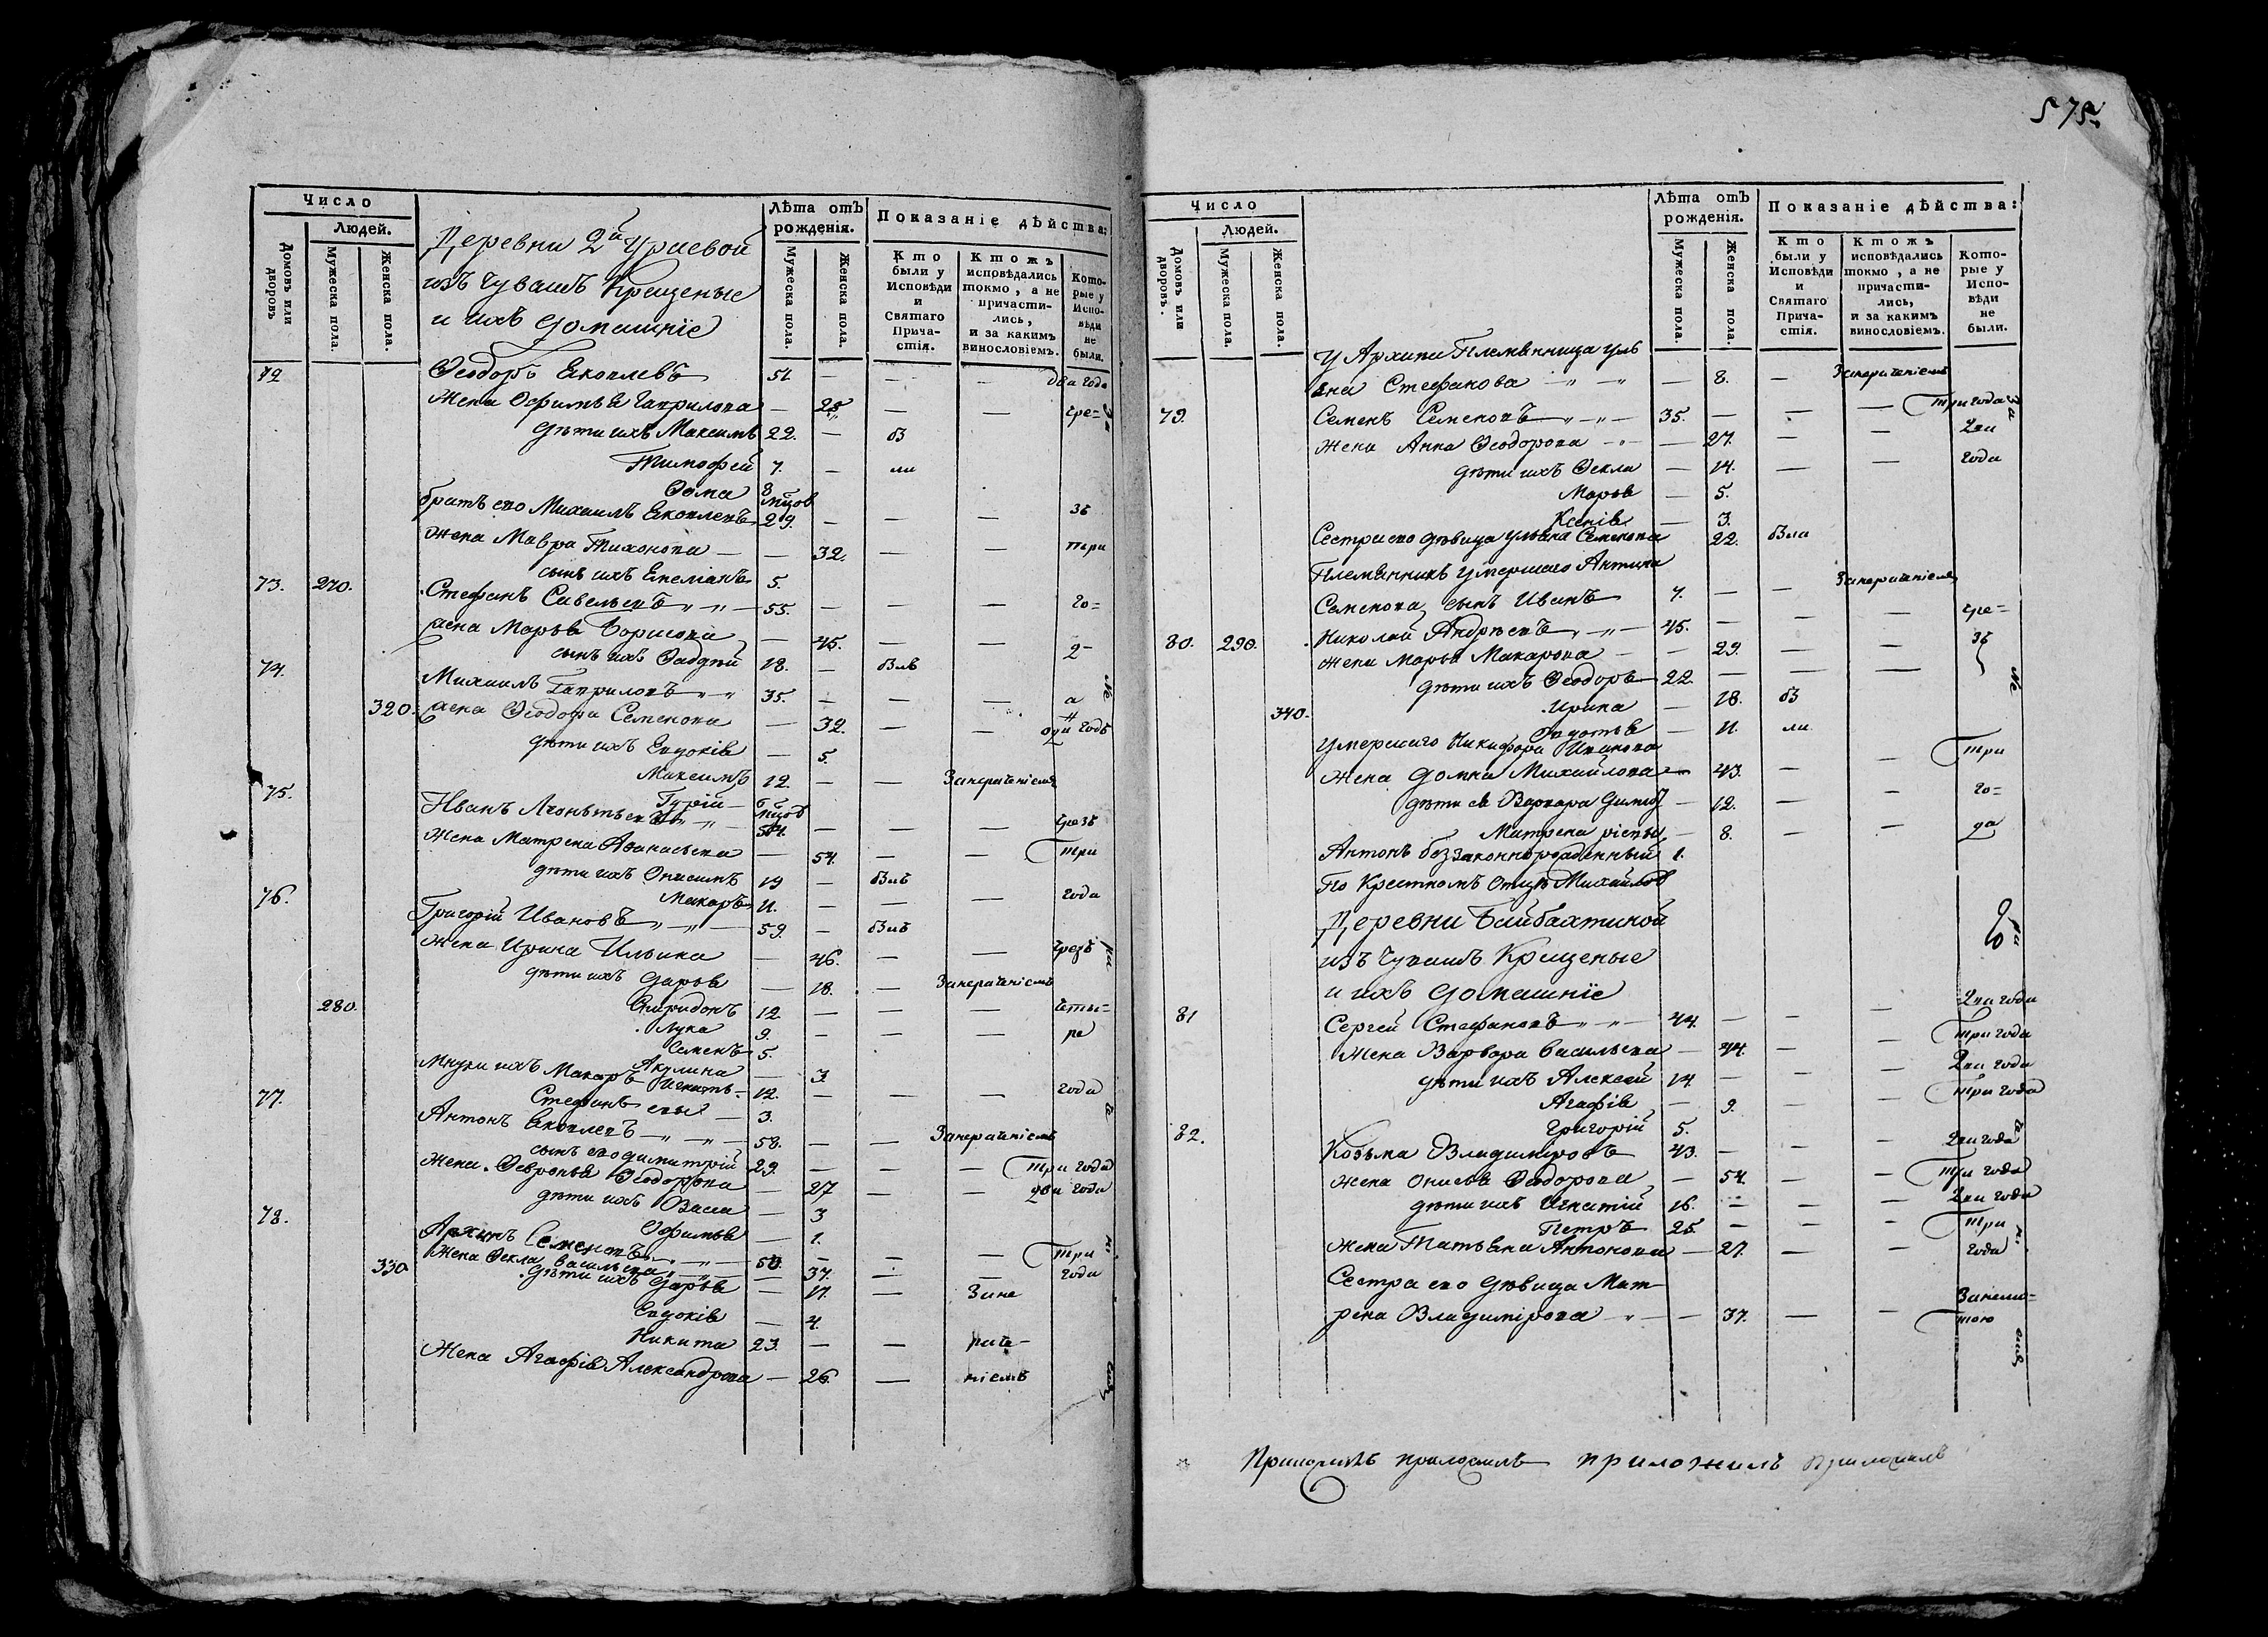 Число
Людей.
Домовъ или дворовъ
Мужеска пола.
Женска пола.
Деревни 2й Уриевой
изъ Чувашъ Крещеные
и ихъ домашніе
Лѣта отъ рожденія.
Мужеска пола.
Женска пола.
Показаніе дѣйства:
Кто были у Исповѣди и Святаго Причастія.
Ктожъ исповѣдались токмо, а не причастились, и за какимъ винословіемъ.
Которые у Исповѣди не были.
72 Ѳеодоръ Яковлевъ 51 — — — два года
Жена Офимья Гаврилова — 25 — — чре=
дѣти ихъ Максимъ 22. — бы
Тимофей 7. — ли
Ѳома 8 мцов
братъ его Михаилъ Яковлевъ 29. — — — зъ
Жена Мавра Тихонова — — 32. — — три
сынъ ихъ Емеліанъ 5.
73. 270. Стефанъ Савельевъ „ „ — 55. — — — го=
жена Марья Борисова — 45. — — д
сынъ ихъ Фаддѣй 18. — былъ
74. Михаилъ Гавриловъ „ „ 35. — — — а
320. жена Ѳеодора Семенова — 32. — — оди годъ
дѣти ихъ Евдокія — 5.
Максимъ 12. — — Занерачен­іемъ
Гурій — 6 мцов
75. Иванъ Леонтьевъ „ „ 54. — — — чрезъ
Жена Матрена Афанасьева — 54. — — три
дѣти ихъ Онисимъ 19 — былъ
Макаръ 11. — — — года
76. Григорій Ивановъ „ „ — 59. — былъ
Жена Ирина Ильина — 46. — — чрезъ
дѣти ихъ Дарья — 18. — Занераченіемъ
280. Спиридонъ 12. — — — четы=
Лука 9. — — — ре
Семенъ 5.
Акулина — 3.
Внуки ихъ Макаръ Игнать= 12. — — — года
Стефанъ евы — 3.
77. Антонъ Яковлевъ — „ — „ — 58. — — Занераченіемъ
сынъ его Димитрій 29. — — — три года
Жена Февронья Ѳеодорова — 27 — — два года
дѣти ихъ Васса — 3
Офимья — 1.
78. Архипъ Семеновъ „ „ — 50. — — — три
330 Жена Ѳекла Васильева „ „ — 37. — — года
дѣти ихъ Дарья — 11. — Зане
Евдокія — 4.
Никита 23. — — раче-
Жена Агафія Александрова — 26. — ніемъ
575
Число
Людей.
Домовъ или дворовъ.
Мужеска пола.
Женска пола.
Лѣта отъ рожденія.
Мужеска пола.
Женска пола.
Показаніе дѣйства:
Кто были у Исповѣди и Святаго Причастія.
Ктожъ исповѣдались токмо, а не причастились, и за какимъ винословіемъ.
Которые у Исповѣди не были.
У Архипа Племянница Уль
яна Стефанова — „ — „ — 8. — Занераченіемъ
79. Семенъ Семеновъ „ „ — 35. — — — три года
Жена Анна Ѳеодорова — „ — 27. — — два
дѣти ихъ Ѳекла — 14. — — года
Марья — 5.
Ксенія — 3.
Сестра его дѣвица Ульяна Семенова 22. была
Племянникъ умершаго Антипа
Семенова сынъ Иванъ 7. — — Занераченіемъ
80. 290. Николай Андреевъ „ „ — 45. — — — чре=
Жена Марья Макарова — — 29. — — зъ
дѣти ихъ Ѳеодоръ 22. — — —
340. Ирина — 18. бы
Федотья — 11. ли
Умершаго Никифора Иванова
Жена Домна Михайлова — 43. — — три
дѣти ея Варвара Димит — 12. — — го=
Матрена ріевы — 8. — — да
Антонъ беззаконнорожденный 1.
По Крестномъ Отцѣ Михайлов
Деревни Байбахтиной
изъ Чувашъ Крещеные
и ихъ домашніе
81 Сергей Стефановъ „ „ — 44. — — — два года
Жена Варвара Васильева — 44. — — три года
дѣти ихъ Алексей 14. — — — два года
Агафія — 9. — — три года
Григорій 5.
82. Козьма Владиміровъ 43. — — — два года
жена Онисья Ѳеодорова — 54. — — три года
дѣти ихъ Игнатій 16. — — — два года
Петръ 25. — — — три
Жена Татьяна Антонова — 27. — — года
Сестра его дѣвица Мат-
рена Владимірова — „ — 37. — — Занемо=
тою
приложилъ приложилъ